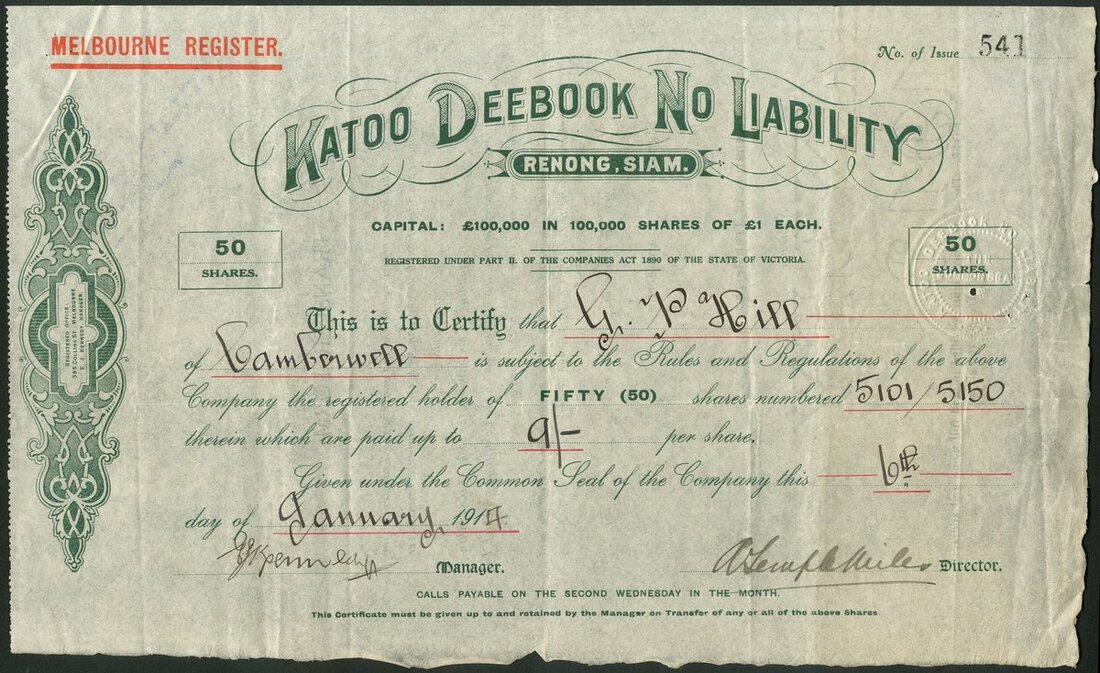 MELBOURNE REGISTER.
No. of Issue 541
KATOO DEEBOOK NO LIABILITY
RENONG, SIAM.
CAPITAL: £100,000 IN 100,000 SHARES OF £1 EACH.
REGISTERED UNDER PART II. OF THE COMPANIES ACT 1890 OF THE STATE OF VICTORIA.
50 SHARES.
50 SHARES.
This is to Certify that G. P Hill
of Camberwell is subject to the Rules and Regulations of the above
Company the registered holder of FIFTY (50) shares numbered 5101/5150
therein which are paid up to 9/- per share.
Given under the Common Seal of the Company this 6th
day of January 1914
Manager.
Director.
CALLS PAYABLE ON THE SECOND WEDNESDAY IN THE MONTH.
This Certificate must be given up to and retained by the Manager on Transfer of any or all of the above Shares.
REGISTERED OFFICE
385 COLLINS ST. MELBOURNE
E. J. KENNEDY, MANAGER.